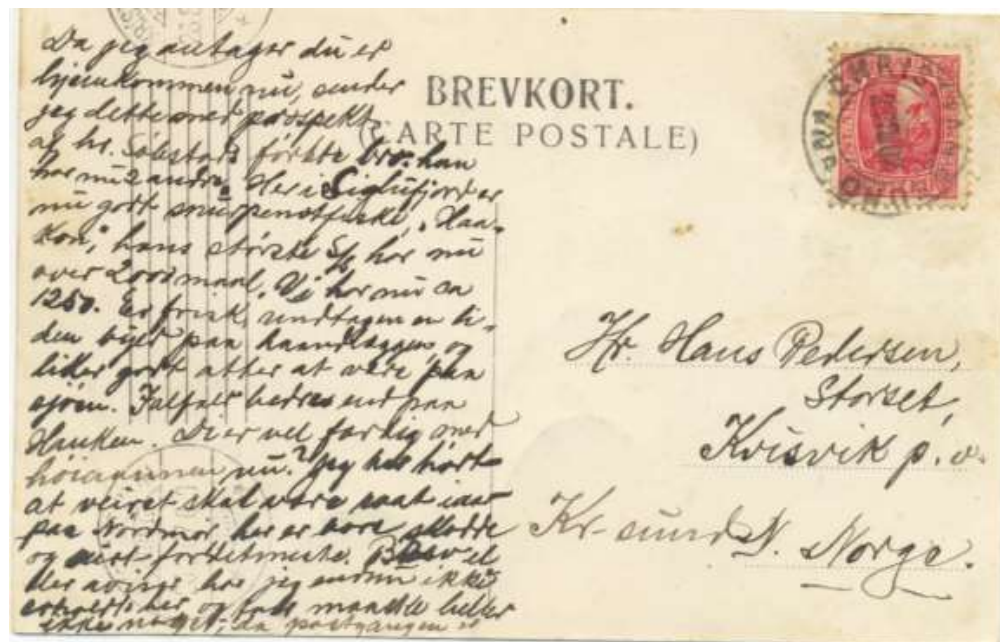 Da jeg antager du er
hjemkommen nu, sender
jeg dette med prospekt
af hr. Søbstads første bro. han
har nu 2 andre. Her i Siglufjord er
nu godt snurpenotfiske, "Haa-
kon", hans største S/S har nu
over 2000 maal. Vi har nu ca
1250. Er frisk, undtagen en li-
den byld paa haandleggen, og
liker godt atter at være paa
sjøen. Ialfald bedre end paa
Hauken. Di er vel færdig med
høiaannen nu? Jeg har hørt
at veiret skal være vaat iaar
paa Nordmør her er bare skodde
og surt for det meste. Brev el
der aviser har jeg endnu ikke
erholdt her, og faar maaske heller
ikke noget, da postgangen er
BREVKORT.
(CARTE POSTALE)
Hr. Hans Pedersen,
Storset,
Kvisvik p. o.
Kr-sund N. Norge.